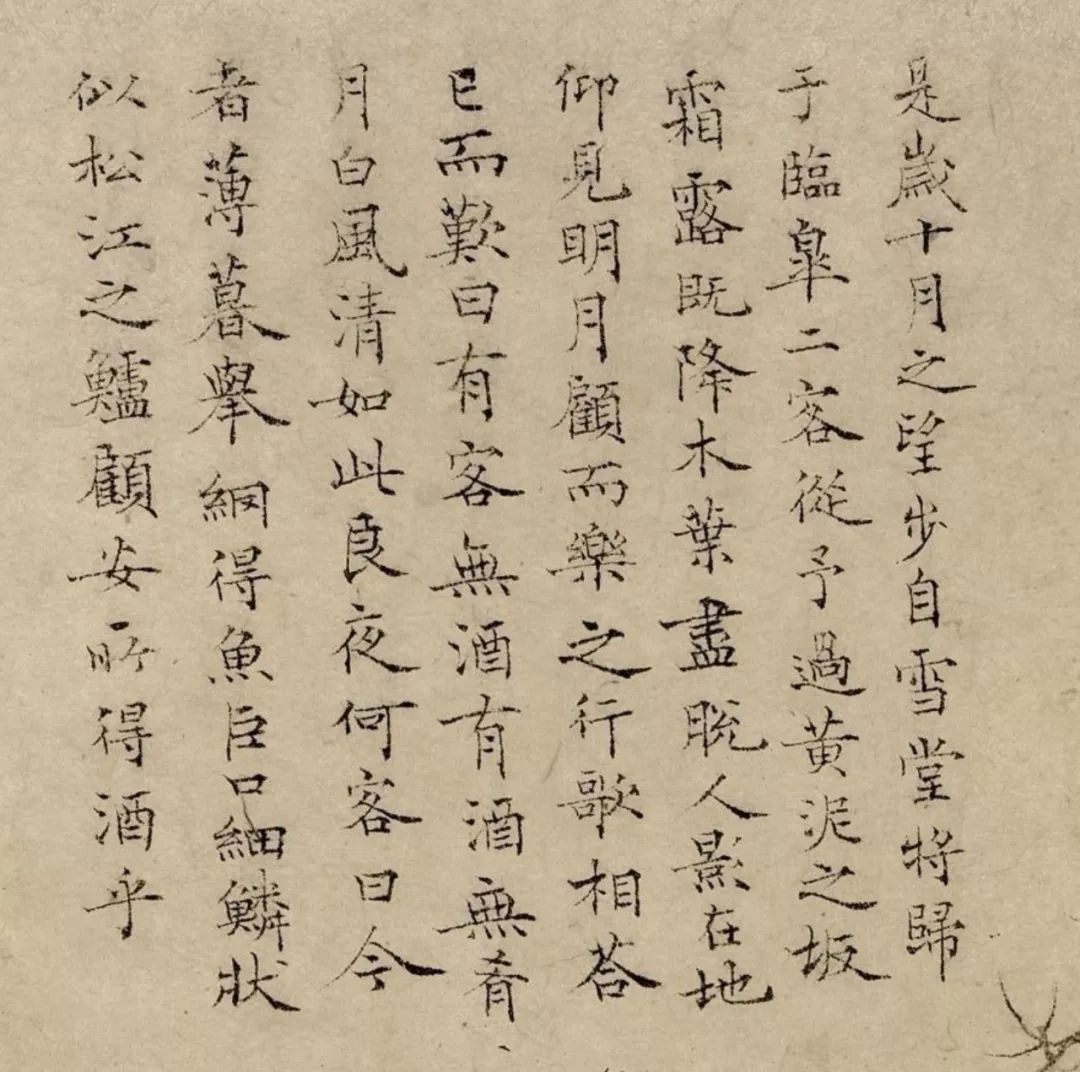 是歲十月之望步自雪堂將歸
于臨皐二客從予過黃泥之坂
霜露既降木葉盡脫人影在地
仰見明月顧而樂之行歌相荅
已而歎曰有客無酒有酒無肴
月白風清如此良夜何客曰今
者薄暮舉網得魚巨口細鱗狀
似松江之鱸顧安所得酒乎